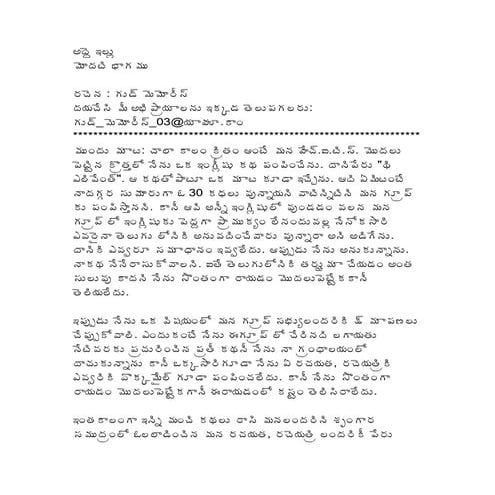 అద్దె ఇల్లు
మొదటి భాగము
రచన : గుడ్ మెమోరీస్
దయచేసి మీ అభిప్రాయాలను ఇక్కడ తెలుపగలరు:
గుడ్_మెమోరీస్_03@యాహూ.కాం
**********************************************************************
ముందు మాట: చాలా కాలం క్రితం అంటే మన హెచ్.ఐ.టి.స్. మొదలు
పెట్టిన క్రొత్తలో నేను ఒక ఇంగ్లీషు కథ పంపించేను. దానిపేరు "థి
ఎలిపేంత్". ఆ కథతోపాటూ ఒక మాట కూడా ఇచ్చేను. అది ఏమిటంటే
నాదగ్గర సుమారుగా ఓ 30 కధలు వున్నాయని వాటినన్నిటిని మన గ్రూప్
కు పంపిస్తానని. కానీ అవి అన్నీ ఇంగ్లిషులో వుండడం వలన మన
గ్రూప్ లో ఇంగ్లిషుకు పెద్దగా ప్రాముక్యం లేనందువల్ల నేనోకసారి
ఎవరైనా తెలుగు లోనికి అనువదించేవారు వున్నారా అని అడిగేను.
దానికి ఎవ్వరూ సమాధానం ఇవ్వలేదు. అప్పుడు నేను అనుకున్నాను.
నాకథ నేనేరాసుకోవాలని. ఐతే తెలుగులోనికి తర్జుమా చేయడం అంత
సులువు కాదని నేను సొంతంగా రాయడం మొదలుపెట్టేకకానీ
తెలియలేదు.
ఇప్పుడు నేను ఒక విషయంలో మన గ్రూప్ సభ్యులందరికీ క్షమాపణలు
చేప్పుకోవాలి. ఎందుకంటే నేను ఈగ్రూప్ లో చేరినది లగాయతు
నేటివరకు ప్రచురించిన ప్రతీ కథనీ నేను నా గ్రంధాలయంలో
దాచుకున్నాను కానీ ఒక్కసారిగూడా నేను ఏ రచయత, రచెయత్రికి
ఎవ్వరికి వొక్కమేల్ గూడా పంపించలేదు. కానీ నేను సొంతంగా
రాయడం మొదలుపెట్టేకగానీ ఈరాయడంలో కష్టం తెలిసిరాలేదు.
ఇంతకాలంగా ఇన్ని మంచి కథలు రాసి మనలందరినీ శృంగార
సముద్రంలో ఓలలాడించిన మన రచయత, రచెయత్రి లందరికీ పేరు